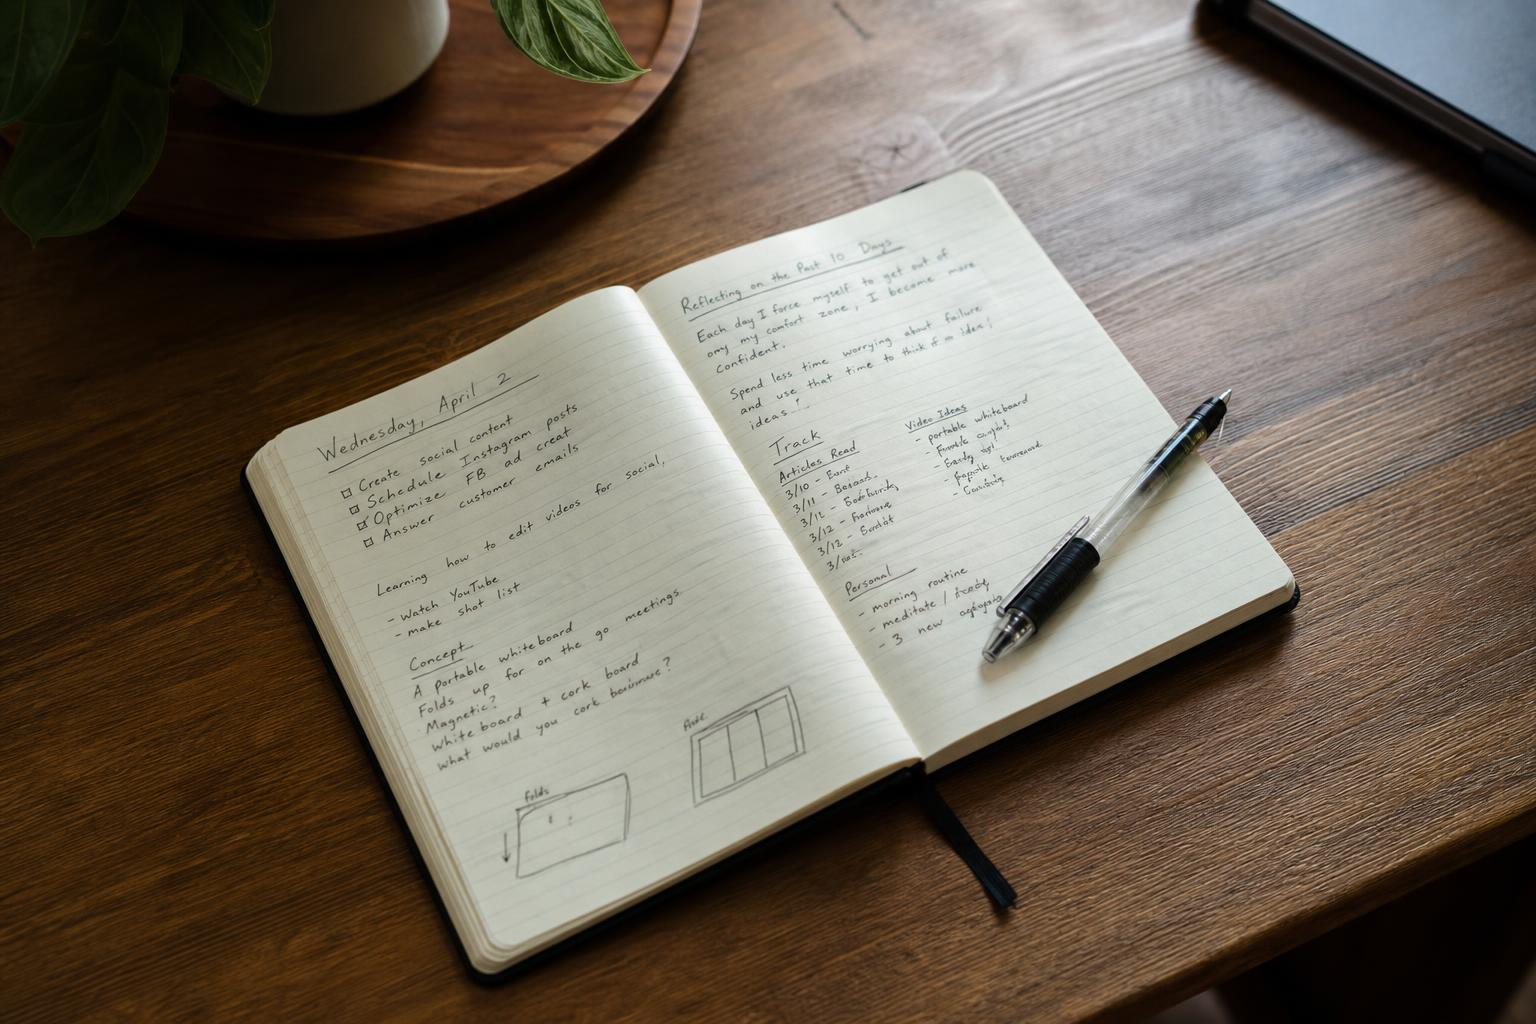 Wednesday, April 2
Create social content
Schedule Instagram posts
Optimize FB ad creat
Answer customer emails
Learning how to edit videos for social,
- watch YouTube
- make shot list
Concept
A portable whiteboard
Folds up for on the go meetings.
Magnetic?
white board + cork board
what would you cork ?
folds
Reflecting on the Past 10 Days
Each day I force myself to get out of
omy my comfort zone, I become more
confident.
Spend less time worrying about failure
and use that time to think of idea!
ideas!
Track
Articles Read
3/10 -
3/11 -
3/12 -
3/12 -
3/12 -
3/
Video Ideas
- portable whiteboard
-
-
-
-
Personal
- morning routine
- meditate /
- 3 new